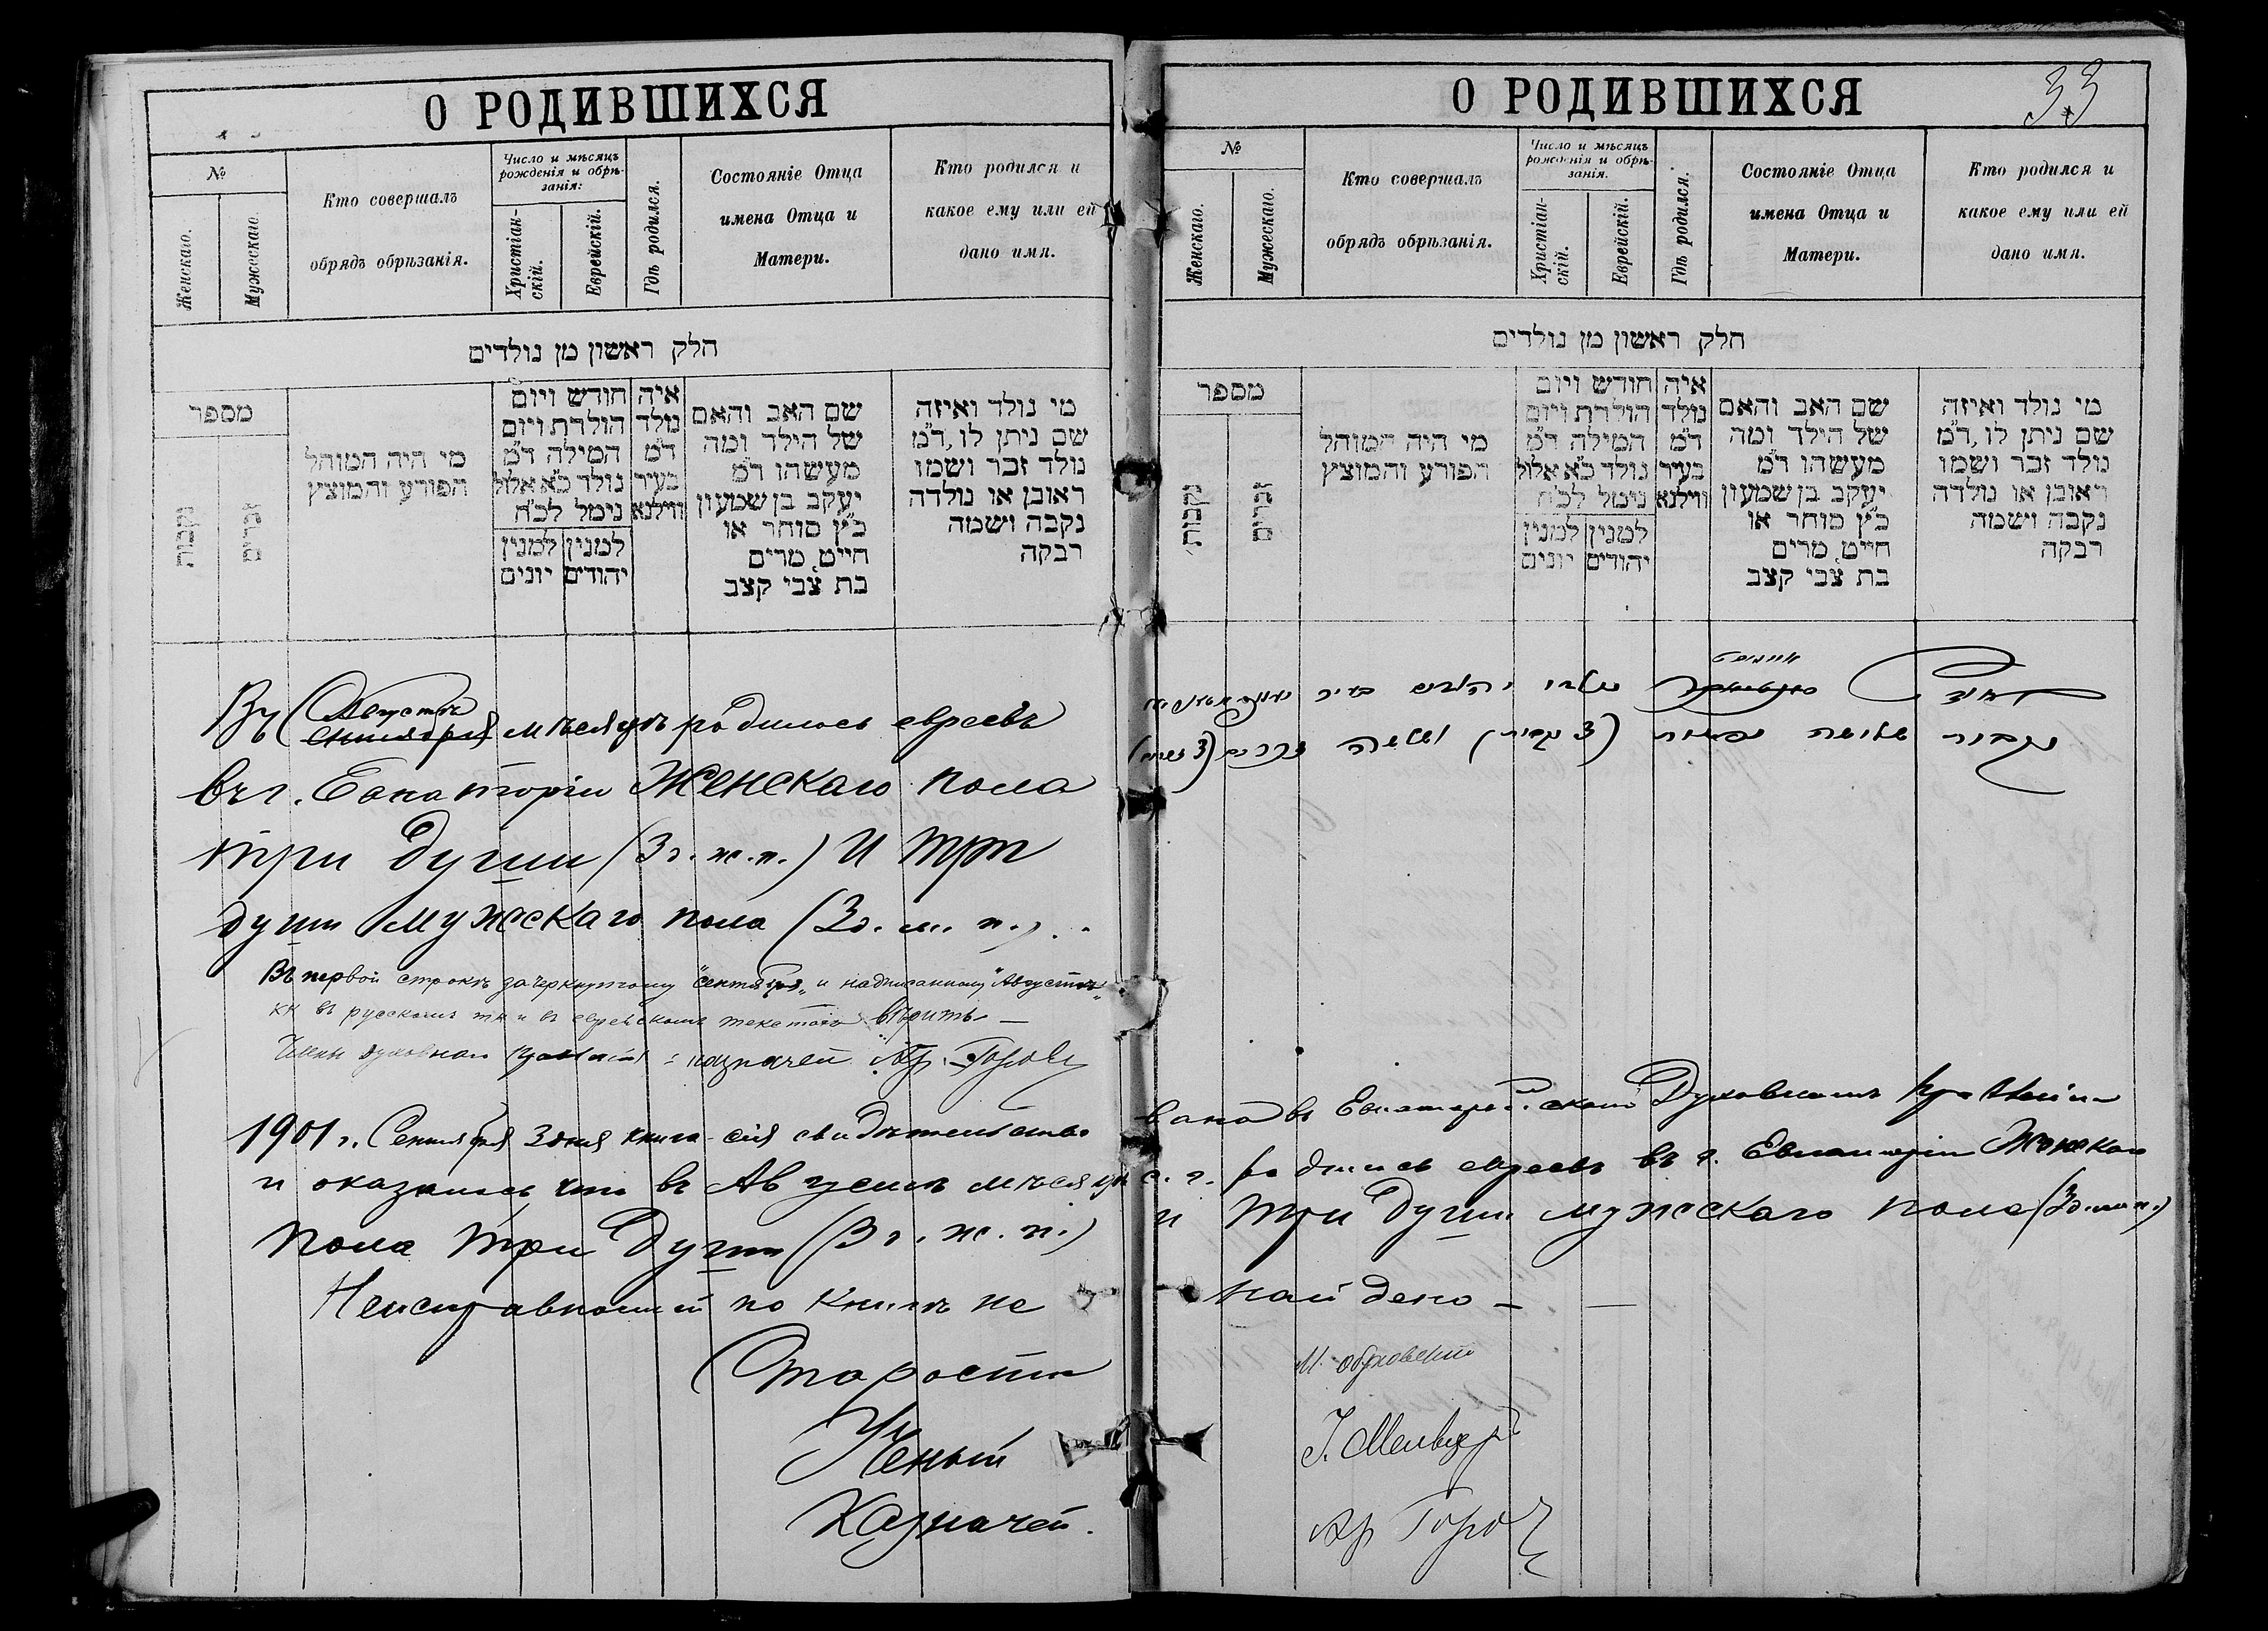 О РОДИВШИХСЯ
№
Женскаго.
Мужескаго.
Кто совершалъ
обрядъ обрѣзанія.
Число и мѣсяцъ
рожденія и обрѣ-
занія:
Христіан-
скій.
Еврейскій.
Гдѣ родился.
Состояніе Отца
имена Отца и
Матери.
Кто родился и
какое ему или ей
дано имя.
חלק ראשון מן נולדים
מספר
נקבות
זכרים
מי היה המוהל
הפורע והמוצץ
חודש ויום
הולדת ויום
המילה ד״מ
נולד כ״א אלול
נימל לכ״ח
למנין
יהודים
למנין
יונים
איה
נולד
ד״מ
בעיר
ווילנא
שם האב והאם
של הילד ומה
מעשהו ד״מ
יעקב בן שמעון
כ״ץ סוחר או
חייט, מרים
בת צבי קצב
מי נולד ואיזה
שם ניתן לו, ד״מ
נולד זכר ושמו
ראובן או נולדה
נקבה ושמה
רבקה
Августѣ
Въ сентябрѣ мѣсяцѣ родилось евреевъ
въ г. Евпаторіи Женскаго пола
три души (3 д. ж. п.) и три
души мужескаго пола (3 д. м. п.)
Въ первой строкѣ зачеркнутому "сентября" и надписанному "Августъ"
въ русскомъ въ еврейскомъ текстахъ вѣрить —
казначей Ар. Горов
1901 г. Сентября 3 дня книга сія свидѣтельство
и оказалось что въ Августѣ мѣсяцѣ
пола три души (3 д. ж. п.)
Неисправностей по книгѣ не
Староста
Ученый
Казначей.
О РОДИВШИХСЯ
33
№
Женскаго.
Мужескаго.
Кто совершалъ
обрядъ обрѣзанія.
Число и мѣсяцъ
рожденія и обрѣ-
занія.
Христіан-
скій.
Еврейскій.
Гдѣ родился.
Состояніе Отца
имена Отца и
Матери.
Кто родился и
какое ему или ей
дано имя.
חלק ראשון מן נולדים
מספר
נקבות
זכרים
מי היה המוהל
הפורע והמוצץ
חודש ויום
הולדת ויום
המילה ד״מ
נולד כ״א אלול
נימל לכ״ח
למנין
יהודים
למנין
יונים
איה
נולד
ד״מ
בעיר
ווילנא
שם האב והאם
של הילד ומה
מעשהו ד״מ
יעקב בן שמעון
כ״ץ סוחר או
חייט, מרים
בת צבי קצב
מי נולד ואיזה
שם ניתן לו, ד״מ
נולד זכר ושמו
ראובן או נולדה
נקבה ושמה
רבקה
נולדו יהודים בעיר
שלושה נפשות
вана въ Евпаторійскомъ Духовномъ Правленіи
с. г. родились евреевъ въ г. Евпаторіи Женскаго
и три души мужескаго пола (3 д. м. п.)
найдено —